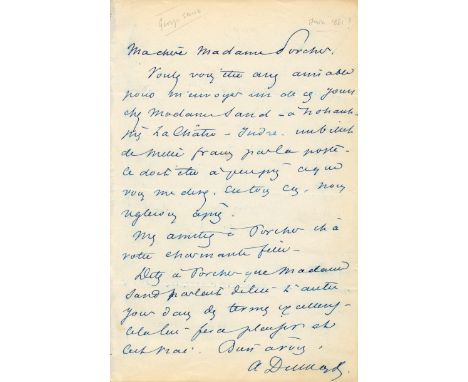 George Sand
Ma chère Madame Porcher,
Voulez vous être assez aimable
pour m'envoyer un de ces jours
chez Madame Sand - à Nohant -
près La Châtre - Indre. un billet
de mille francs par la poste -
ce doit être à peu près ce que
vous me devez. En tous cas, nous
règlerons après.
Mes amitiés à Porcher et à
votre charmante fille -
Dites à Porcher que Madame
Sand parlait de lui l'autre
jour dans des termes excellens -
cela lui fera plaisir et
c'est vrai. Bien à vous,
A Dumas f.